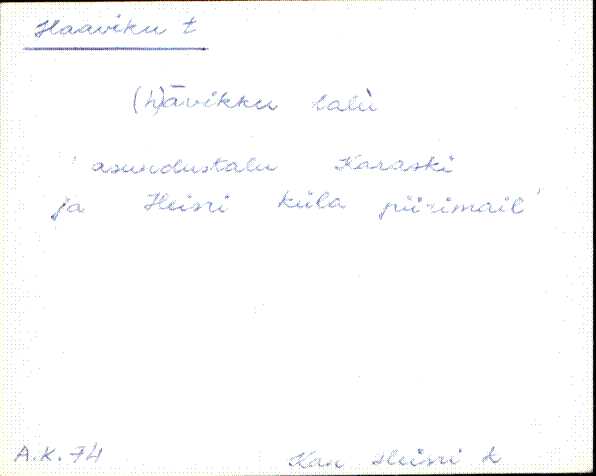 Haaviku t
(h)āvikku talù
'asundustalu Karaski
ja Heisri küla piirimail'
A.K. 74
Kan Heisri k